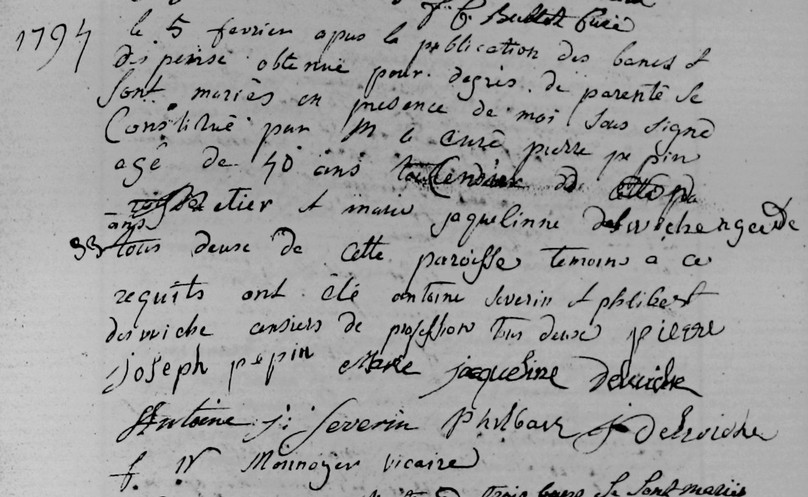 f: G. Bultot Curé
1794 le 5 fevrien apus la publication des bans et
dispense obtenuë pour degrés de parenté se
sont mariés en presence de moi sous signé
Constitué par M le Curé pierre pepin
agé de 40 ans
etier et marie jaquelinne deluiche ageé de
33 ans tous deuxe de cette paroisse temoins a ce
requits ont été antoine severin et philibert
desruiche censiers de profession tous deuxe pierre
joseph pepin Marie jacqueline
Antoine j: Severin Philbert j
f. N Monnoyer vicaire
trois bans se sont mariés